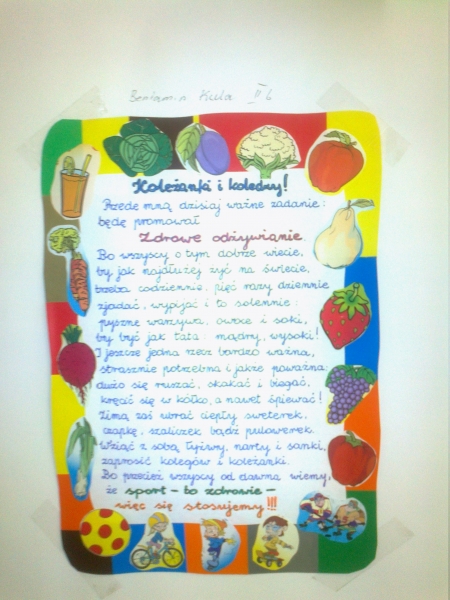 Beniamin Kula II b
Koleżanki i koledzy!
Przede mną dzisiaj ważne zadanie:
będę promował
Zdrowe odżywianie.
Bo wszyscy o tym dobrze wiecie,
by jak najdłużej żyć na świecie,
trzeba codziennie, pięć razy dziennie
zjadać, wypijać i to solennie:
pyszne warzywa, owoce i soki,
by być jak tata: mądry, wysoki!
I jeszcze jedna rzecz bardzo ważna,
strasznie potrzebna i jakże poważna:
dużo się ruszać, skakać i biegać,
kręcić się w kółko, a nawet śpiewać!
Zimą zaś ubrać ciepły sweterek,
czapkę, szaliczek bądź pulowerek.
Wziąć z sobą łyżwy, narty i sanki,
zaprosić kolegów i koleżanki.
Bo przecież wszyscy od dawna wiemy,
że sport - to zdrowie -
więc się stosujemy!!!